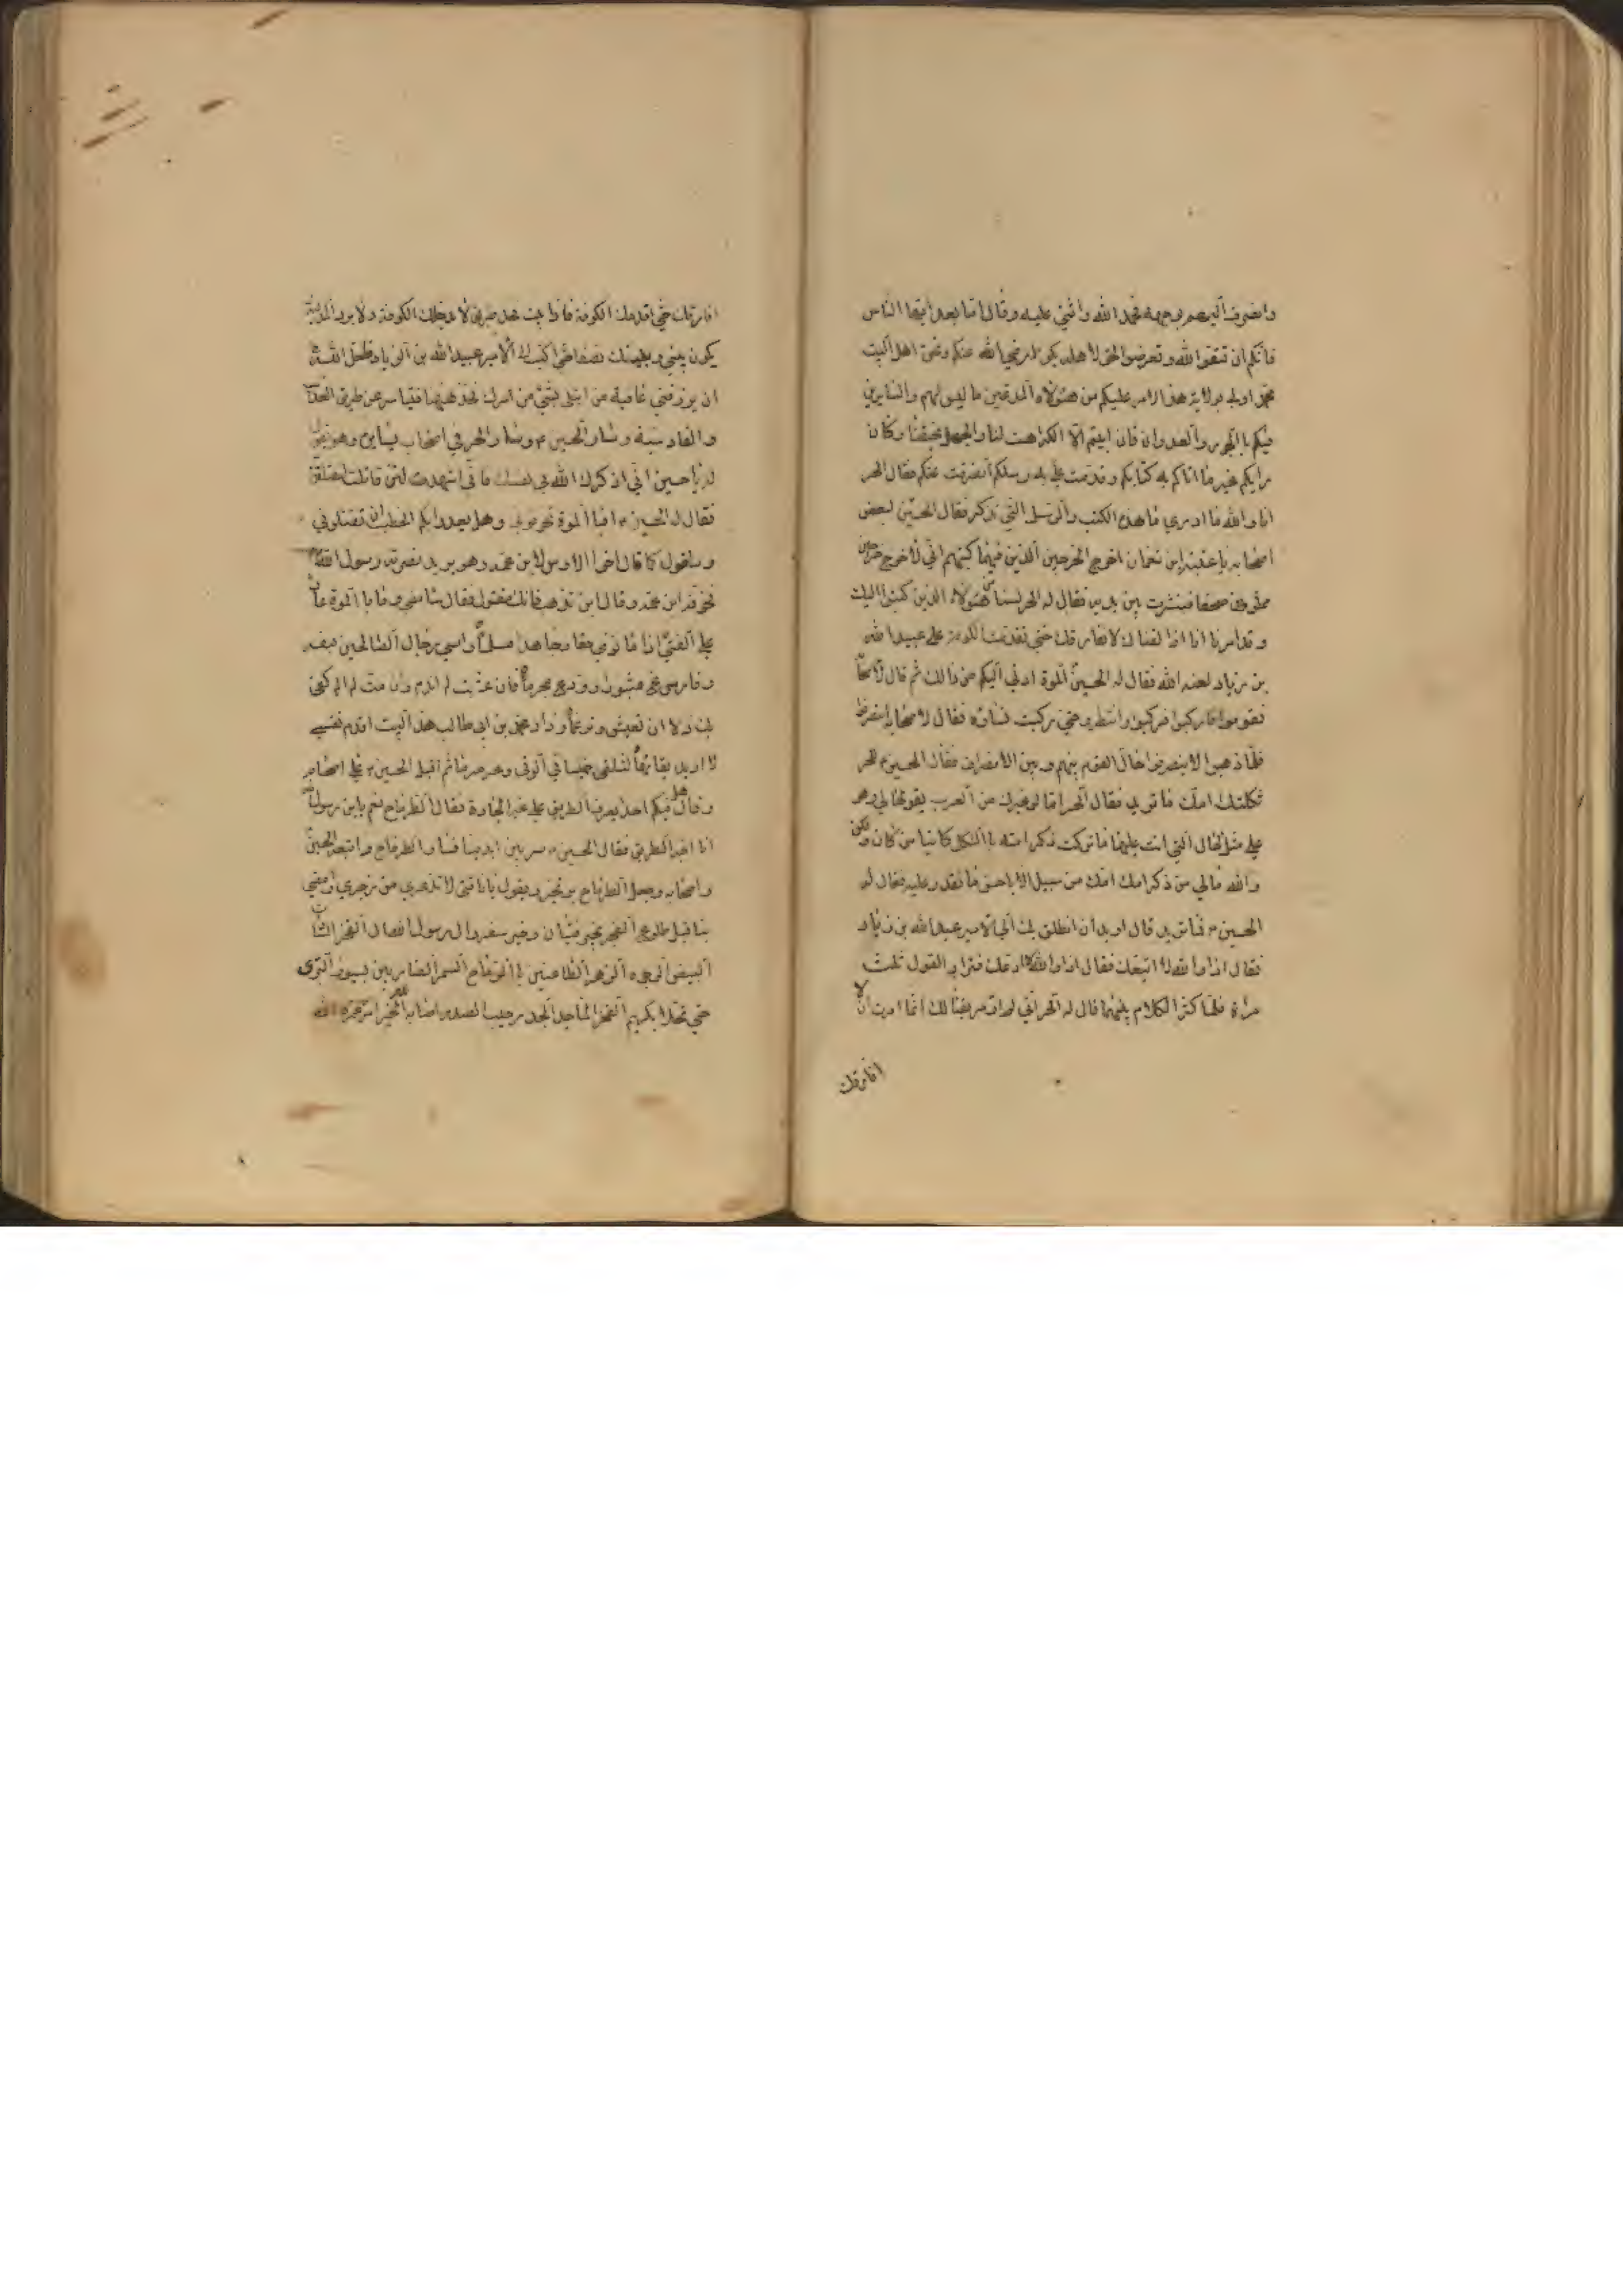 وانصرف اليهم بوجهه فحمد الله واثني عليه وقال اما بعد ايها الناس
فانكم ان تتقوا الله وتعرضوا الحق لاهله يكن لارضي الله عنكم ونحن اهل البيت
محمد اولي بولاية هذا الامر عليكم من هؤلاء المدعين ما ليس لهم والسايرين
فيكم بالجور والعدوان فان ابيتم الا الكراهت لنا والجهل بحقنا وكان
رايكم غير ما اتاكم به كتابكم وقدمت علي به رسلكم انصرفت عنكم فقال الحر
انا والله ما ادري ما هذه الكتب والرسل التي تذكر فقال الحسين لبعض
اصحابه يا عقبة ابن نعمان اخرج الخرجين الذين فيهما كتبهم الي فاخرج خرجين
مملوين صحفا فنشرت بين يديه فقال له الحر لسنا من هؤلاء الذين كتبوا اليك
وقد امرنا انا اذا لقيناك لا نفارقك حتي نقدمك الكوفة علي عبيد الله
بن زياد لعنه الله فقال له الحسين الموة ادني اليكم من ذالك ثم قال لاصحابه
فقوموا فاركبوا فركبوا وانتظر حتي ركبت نساؤه فقال لاصحابه انصرفوا
فلما ذهبوا لاينصرفوا حال القوم بينهم وبين الانصراف فقال الحسين للحر
ثكلتك امك ما تريد فقال الحر اما لو غيرك من العرب يقولها لي وهو
علي مثل الحال التي انت عليها ما تركت ذكر امه بالثكل كائنا من كان ولكن
والله مالي من ذكر امك من سبيل الا باحسن ما نقدر عليه فقال له
الحسين فما تريد قال اريد ان انطلق بك الي الامير عبيد الله بن زياد
فقال اذا والله لا اتبعك فقال اذا والله لا ادعك فترادا القول ثلث
مراة فلما كثر الكلام بينهما قال له الحر اني لم اومر بقتالك انما امرت ان لا
افارقك
افارقك حتي اقدمك الكوفة فاذا ابيت فخذ طريق لا يدخلك الكوفة ولا يرد المدينة
يكون بيني وبينك نصفا حتي اكتب الي الامير عبيد الله بن الزياد فلعل الله
ان يرزقني عافية من ابتلي بشيء من امرك فخذ هيهنا فتياسر عن طريق العذيب
والقادسية وسار الحسين وسار الحر في اصحاب يسايره وهو يقول
له يا حسين اني اذكرك الله في نفسك فاني اشهد لئن قاتلت لتقتلن
فقال له الحسين افبا الموة تخوفني وهل يعدوا بكم الخطب ان تقتلوني
وساقول كما قال اخوا الاوس لابن عمه وهو يريد نصرته رسول الله
فخوفه ابن عمه وقال اين تذهب فانك مقتول فقال سامضي وما بالموة عار
علي الفتي اذا ما نوي حقا وجاهد مسلما واسي رجال الصالحين بنفسه
وفارس مثبورا وودع مجرما فان عشت لم اندم وان مت لم الم كفي
بك ذلا ان تعيش وترغما
لا اريد بقائها لتلقي خميسا في الوغي وعرمرما ثم اقبل الحسين علي اصحابه
وقال هل فيكم احد يعرف الطريق علي غير الجادة فقال الطرماح نعم يا ابن رسول الله
انا اخبر الطريق فقال الحسين سر بين ايدينا فسار الطرماح واتبعه الحسين
واصحابه وجعل الطرماح يرتجز ويقول يا ناقتي لا تذعري من زجري وامضي
بنا قبل طلوع الفجر بخير فتيان وخير سفر وال رسول الله ال الفخر السادة
البيض الوجوه الزهر الطاعنين بالرماح السمر الضاربين بسيوف البتر
حتي تحلا بكريم الفخر الماجد الجد رحيب الصدر اصابه الله بخير امر عمره الله